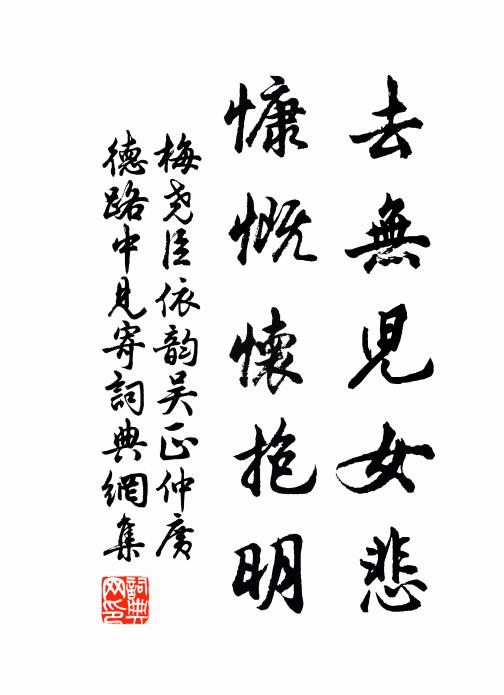 去無兒女悲
慷慨懷抱明
梅尧臣依韵吴正仲廣
德路中見寄詞典網集
詞典网印